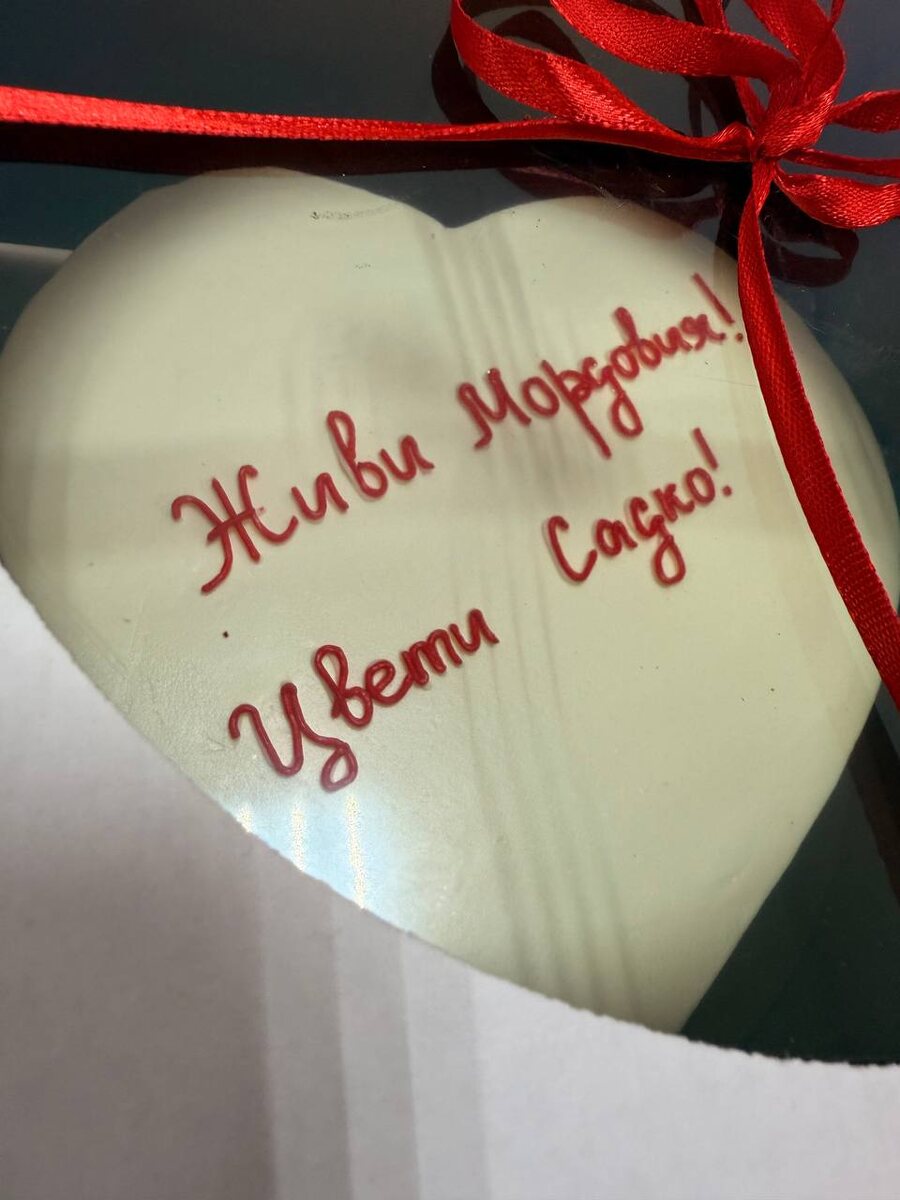 Живи Мордовия!
Цвети Садко!